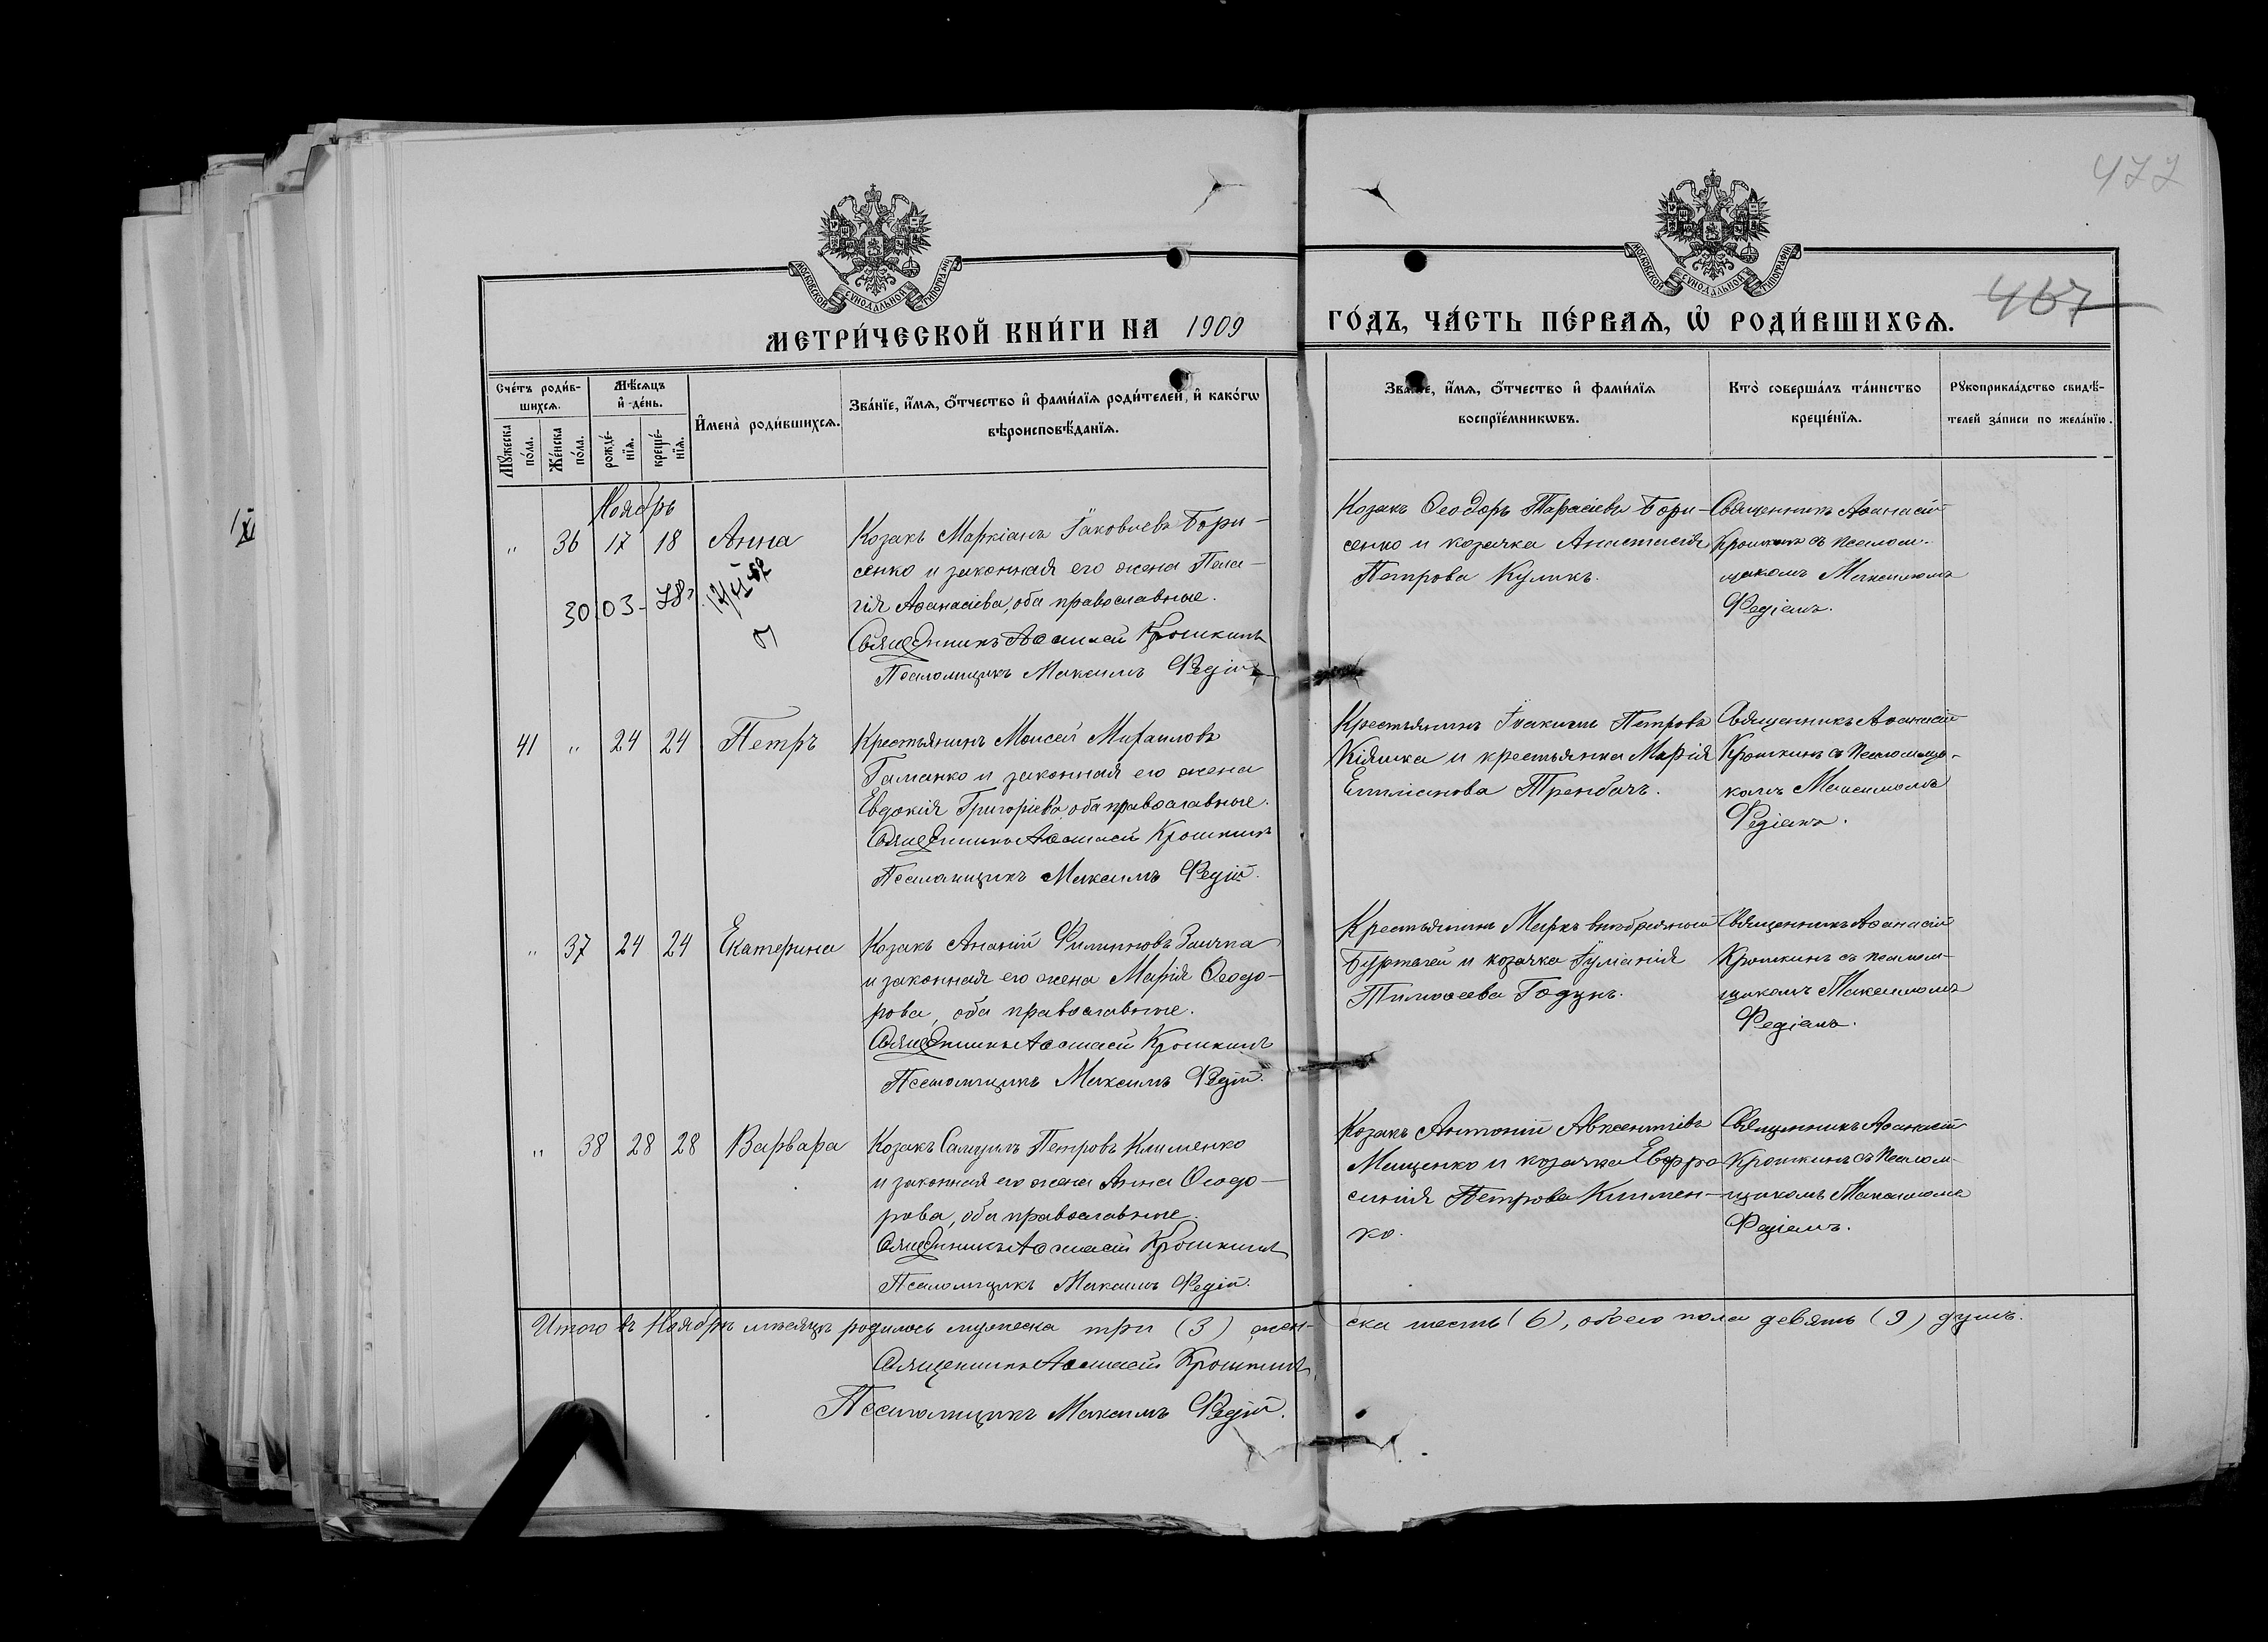 477
МОСКОВСКОЙ СУНОДАЛЬНОЙ ТИПОГРАФИИ
МОСКОВСКОЙ СУНОДАЛЬНОЙ ТИПОГРАФИИ
467
МЕТРИ́ЧЕСКОЙ КНИ́ГИ НА 1909 ГО́ДЪ, ЧА́СТЬ ПЕ́РВАѦ, Ѡ҆ РОДИ́ВШИХСѦ.
Сче́тъ роди́в-
шихсѧ.
Мꙋ́жеска по́ла.
Же́нска по́ла.
Мѣ́сѧцъ
и҆ де́нь.
рожде́-
нїѧ.
креще́-
нїѧ.
И҆мена̀ роди́вшихсѧ.
Зва́нїе, и҆́мѧ, ѻ҆́тчество и҆ фами́лїѧ роди́телей, и҆ како́гѡ
вѣроисповѣ́данїѧ.
Зва́нїе, и҆́мѧ, ѻ҆́тчество и҆ фами́лїѧ
воспрїе́мникѡвъ.
Кто̀ соверша́лъ та́инство
креще́нїѧ.
Рꙋкоприкла́дство свидѣ́-
телей за́писи по жела́нїю.
Ноябрь
" 36 17 18 Анна
30.03-78
Козакъ Маркіанъ Іаковлевъ Бори-
сенко и законная его жена Пела-
гія Аѳанасіева, оба православные.
Священникъ Аѳанасій Крошкинъ
Псаломщикъ Максимъ Федій
Козакъ Ѳеодоръ Тарасіевъ Бори-
сенко и козачка Анастасія
Петрова Куликъ.
Священникъ Аѳанасій
Крошкинъ съ псалом-
щикомъ Максимомъ
Федіемъ.
41 " 24 24 Петръ
Крестьянинъ Моисей Михаиловъ
Гаманко и законная его жена
Евдокія Григоріева, оба православные.
Священникъ Аѳанасій Крошкинъ
Псаломщикъ Максимъ Федій.
Крестьянинъ Іоакимъ Петровъ
Кіяшка и крестьянка Марія
Епиманова Трембачъ.
Священникъ Аѳанасій
Крошкинъ съ псаломщи-
комъ Максимомъ
Федіемъ.
" 37 24 24 Екатерина
Козакъ Ананій Филипповъ Заичка
и законная его жена Марія Ѳеодо-
рова, оба православные.
Священникъ Аѳанасій Крошкинъ
Псаломщикъ Максимъ Федій.
Крестьянинъ Маркъ внѣбрачный
Буртасей и козачка Іуліанія
Тимоѳеева Годунъ.
Священникъ Аѳанасій
Крошкинъ съ псалом-
щикомъ Максимомъ
Федіемъ.
" 38 28 28 Варвара
Козакъ Самуилъ Петровъ Клименко
и законная его жена Анна Ѳеодо-
рова, оба православные.
Священникъ Аѳанасій Крошкинъ
Псаломщикъ Максимъ Федій.
Козакъ Антоній Авксентіевъ
Мищенко и козачка Евфро-
синія Петрова Климен-
ко.
Священникъ Аѳанасій
Крошкинъ съ псалом-
щикомъ Максимомъ
Федіемъ.
Итого въ Ноябрѣ мѣсяцѣ родилось мужеска три (3) жен-ска шесть (6), обоего пола девять (9) душъ.
Священникъ Аѳанасій Крошкинъ
Псаломщикъ Максимъ Федій.